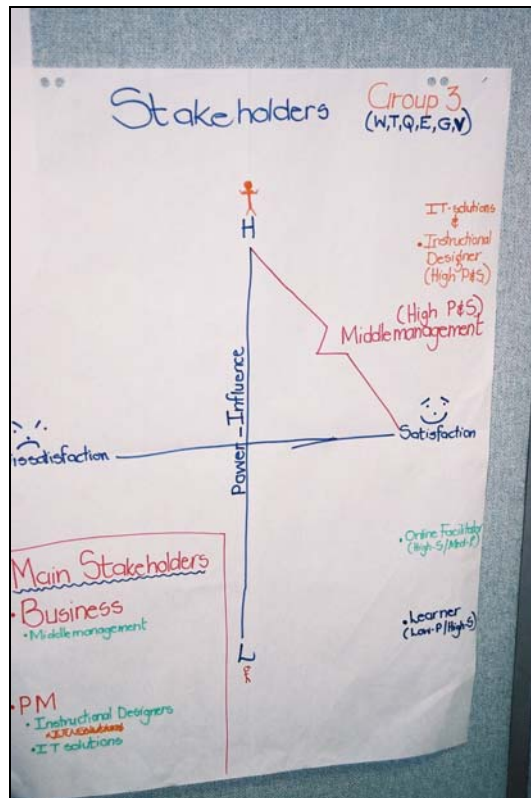 Stakeholders
Group 3
(W,T,Q,E,G,V)
H
IT-solutions
&
• Instructional
Designer
(High P&S)
(High P&S)
Middlemanagement
Power-Influence
issatisfaction
Satisfaction
• Online Facilitator
(High-S/Med-P)
Main Stakeholders
• Business
• Middlemanagement
• Learner
(Low-P/High-S)
L
• PM
• Instructional Designers
• IT solutions